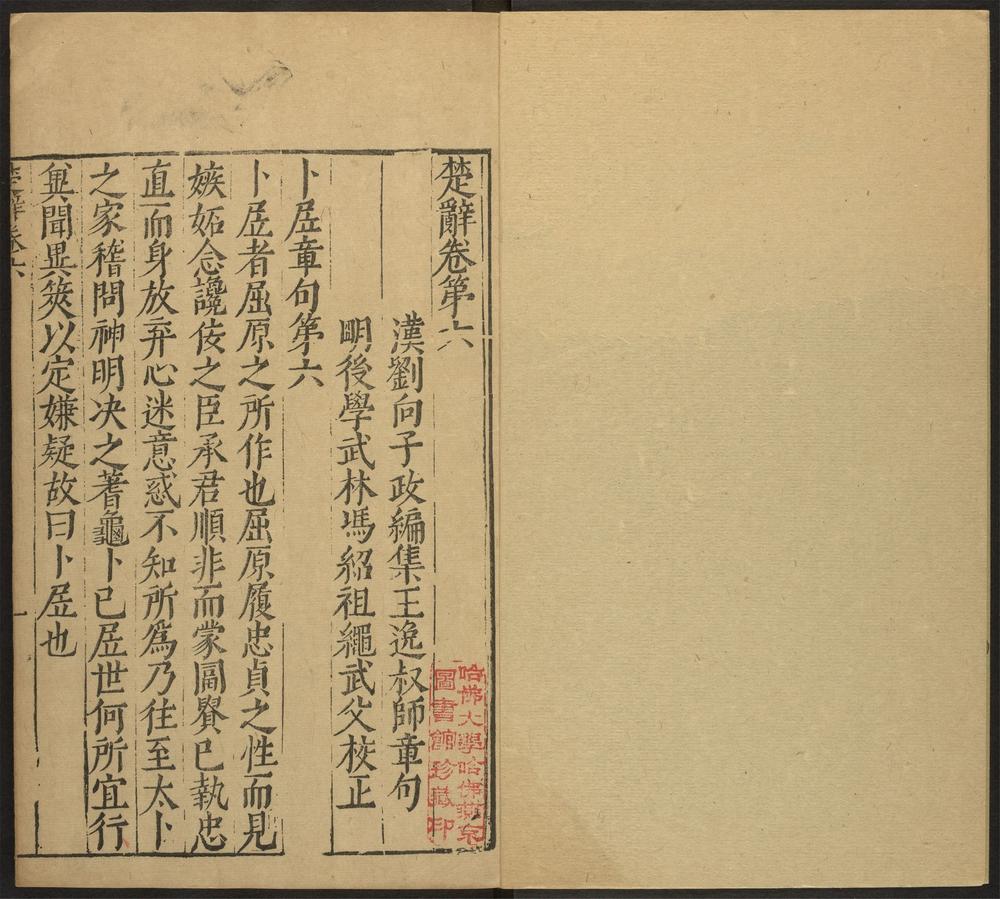 楚辭卷第六
漢劉向子政編集王逸叔師章句
明後學武林馮紹祖繩武父校正
卜居章句第六
卜居者屈原之所作也屈原履忠貞之性而見
嫉妬念讒佞之臣承君順非而蒙冨貴已執忠
直而身放弃心迷意惑不知所爲乃往至太卜
之家稽問神明决之蓍龜卜已居世何所宜行
兾聞異筴以定嫌疑故曰卜居也
楚辭卷六
一
哈佛大學哈佛燕京
圖書館珍藏印